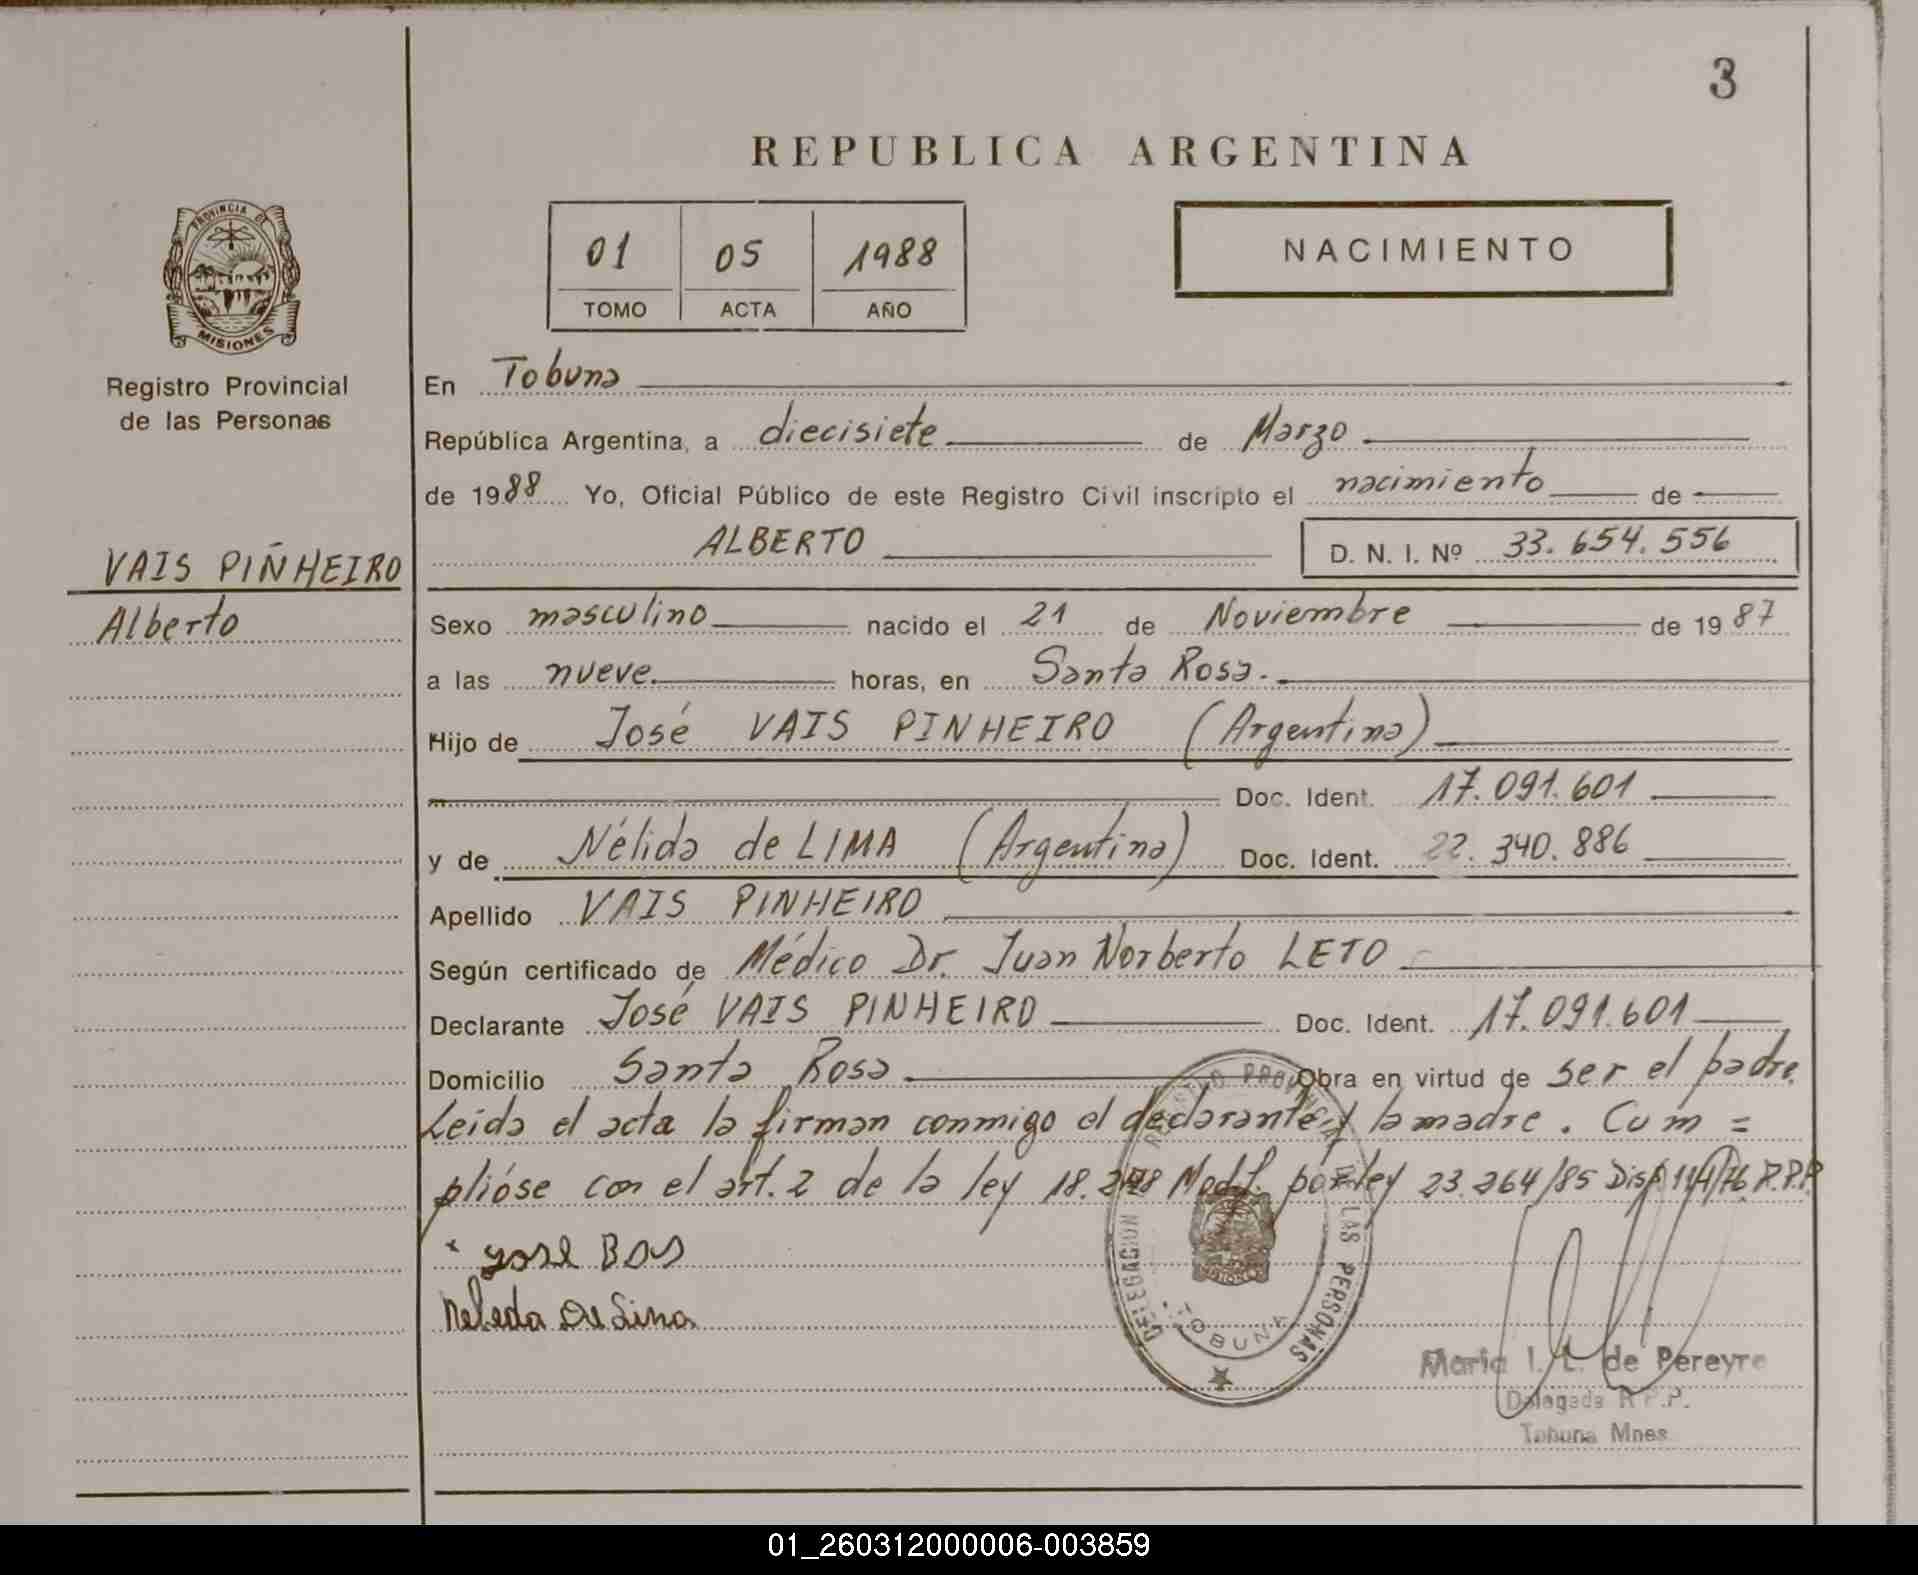 3
REPUBLICA ARGENTINA
PROVINCIA DE
MISIONES
Registro Provincial
de las Personas
01 05 1988
TOMO ACTA AÑO
NACIMIENTO
En Tobuna
República Argentina, a diecisiete de Marzo
de 1988 Yo, Oficial Público de este Registro Civil inscripto el nacimiento de
VAIS PIÑHEIRO
Alberto
ALBERTO D. N. I. Nº 33.654.556
Sexo masculino nacido el 21 de Noviembre de 1987
a las nueve horas, en Santa Rosa.
Hijo de José VAIS PINHEIRO (Argentina)
Doc. Ident. 17.091.601
y de Nélida de LIMA (Argentina) Doc. Ident. 22.340.886
Apellido VAIS PINHEIRO
Según certificado de Médico Dr. Juan Norberto LETO
Declarante José VAIS PINHEIRO Doc. Ident. 17.091.601
Domicilio Santa Rosa Obra en virtud de ser el padre.
Leída el acta la firman conmigo el declarante y la madre. Cum =
plióse con el art. 2 de la ley 18.248 Modf. por ley 23.264/85 Disp. 114/76 R.P.P.
José
Neleda De Lima
DELEGACION PERSONAS
TOBUNA
Maria I. L. de Pereyra
Delegada R.P.P.
Tobuna Mnes
01_260312000006-003859